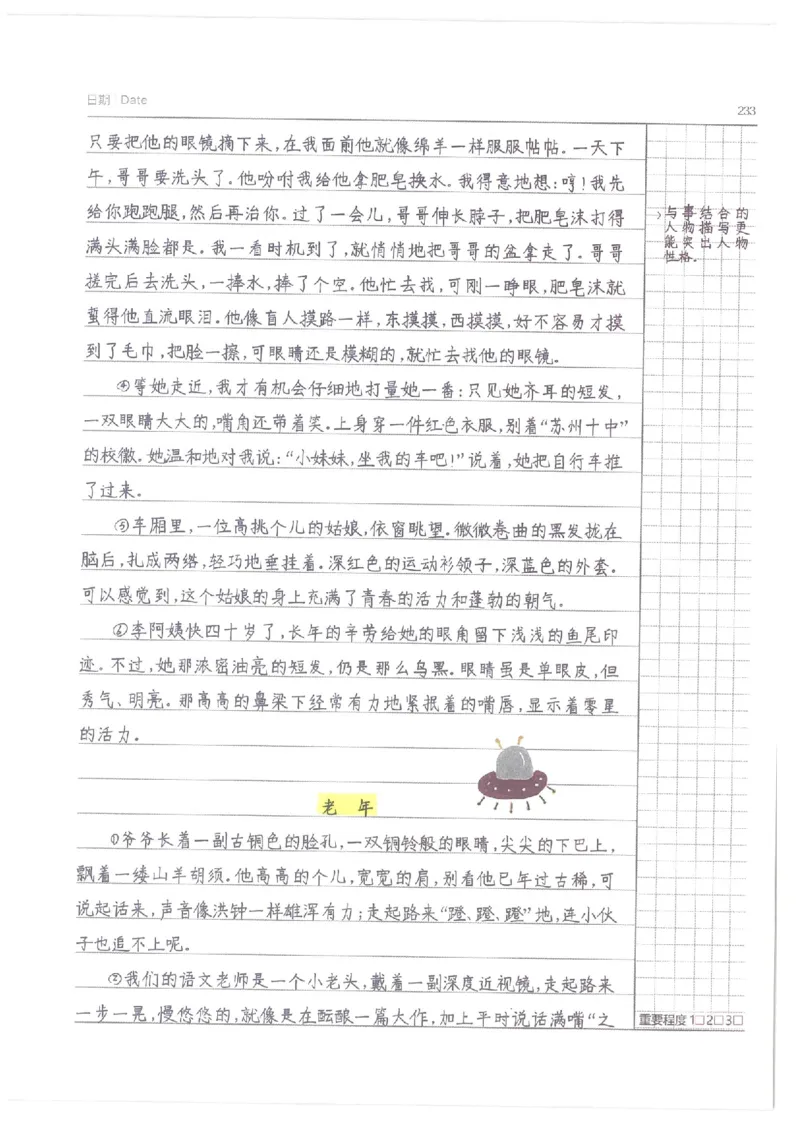 日期 Date
233
只要把他的眼镜摘下来,在我面前他就像绵羊一样服服帖帖。一天下
午,哥哥要洗头了。他吩咐我给他拿肥皂换水。我得意地想:哼!我先
给你跑跑腿,然后再治你。过了一会儿,哥哥伸长脖子,把肥皂沫打得
满头满脸都是。我一看时机到了,就悄悄地把哥哥的盆拿走了。哥哥
搓完后去洗头,一捧水,捧了个空。他忙去找,可刚一睁眼,肥皂沫就
蜇得他直流眼泪。他像盲人摸路一样,东摸摸,西摸摸,好不容易才摸
到了毛巾,把脸一擦,可眼睛还是模糊的,就忙去找他的眼镜。
④等她走近,我才有机会仔细地打量她一番:只见她齐耳的短发,
一双眼睛大大的,嘴角还带着笑。上身穿一件红色衣服,别着“苏州十中”
的校徽。她温和地对我说:“小妹妹,坐我的车吧!”说着,她把自行车推
了过来。
⑤车厢里,一位高挑个儿的姑娘,依窗眺望。微微卷曲的黑发拢在
脑后,扎成两绺,轻巧地垂挂着。深红色的运动衫领子,深蓝色的外套。
可以感觉到,这个姑娘的身上充满了青春的活力和蓬勃的朝气。
⑥李阿姨快四十岁了,长年的辛劳给她的眼角留下浅浅的鱼尾印
迹。不过,她那浓密油亮的短发,仍是那么乌黑。眼睛虽是单眼皮,但
秀气、明亮。那高高的鼻梁下经常有力地紧抿着的嘴唇,显示着零星
的活力。
老 年
①爷爷长着一副古铜色的脸孔,一双铜铃般的眼睛,尖尖的下巴上,
飘着一缕山羊胡须。他高高的个儿,宽宽的肩,别看他已年过古稀,可
说起话来,声音像洪钟一样雄浑有力;走起路来“蹬、蹬、蹬”地,连小伙
子也追不上呢。
②我们的语文老师是一个小老头,戴着一副深度近视镜,走起路来
一步一晃,慢悠悠的,就像是在酝酿一篇大作,加上平时说话满嘴“之
与事结合的
人物描写更
能突出人物
性格。
重要程度 1□2□3□